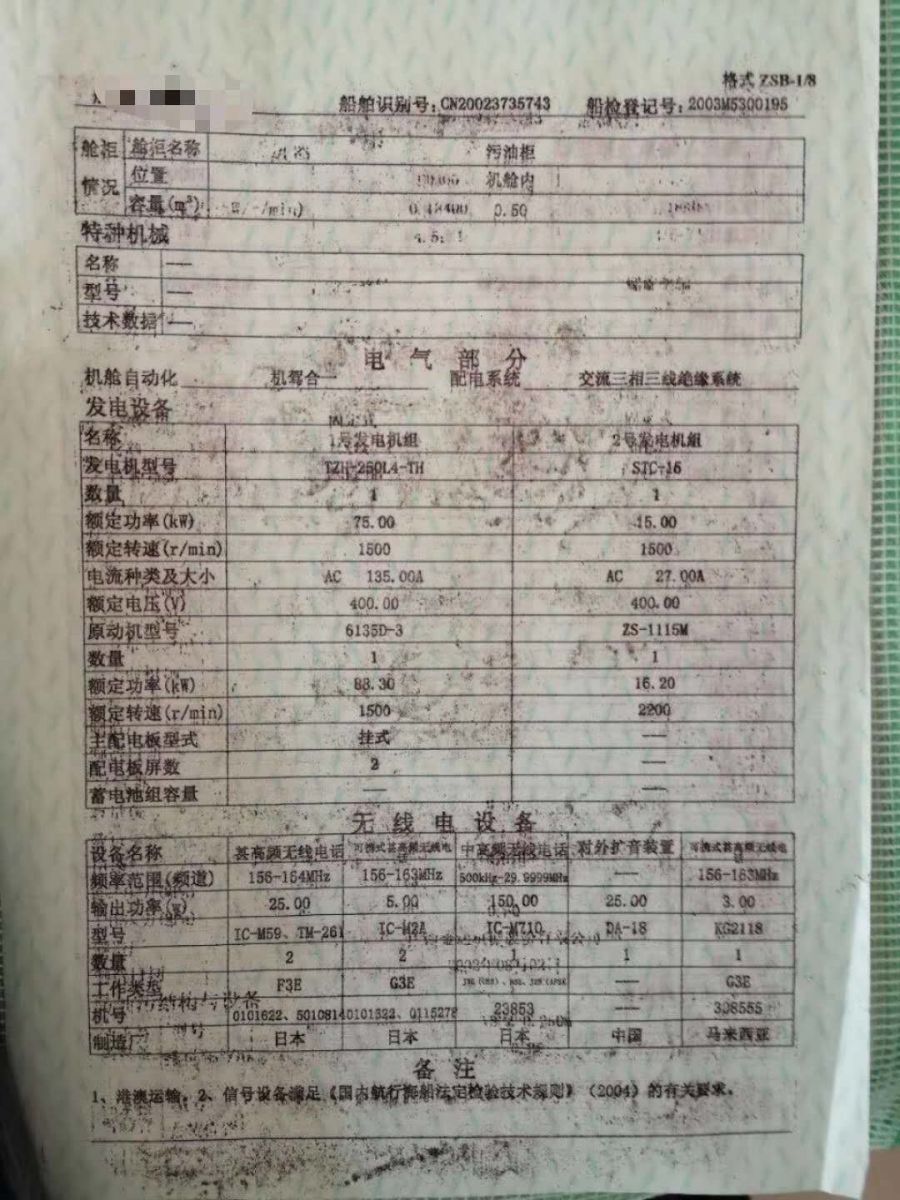 格式 ZSB-1/8
船舶识别号:CN20023735743 船检登记号:2003M5300195
舱柜情况 舱柜名称 污油柜
位置 机舱内
容量(m³) 0.50
特种机械
名称 —
型号 —
技术数据 —
电气部分
机舱自动化 机驾合一 配电系统 交流三相三线绝缘系统
发电设备
名称 1号发电机组 2号发电机组
发电机型号 TZH-250L4-TH STC-15
数量 1 1
额定功率(kW) 75.00 15.00
额定转速(r/min) 1500 1500
电流种类及大小 AC 135.00A AC 27.00A
额定电压(V) 400.00 400.00
原动机型号 6135D-3 ZS-1115M
数量 1 1
额定功率(kW) 88.30 16.20
额定转速(r/min) 1500 2200
主配电板型式 挂式 —
配电板屏数 2 —
蓄电池组容量 — —
无线电设备
设备名称 甚高频无线电话 可携式甚高频无线电话 中高频无线电话 对外扩音装置 可携式甚高频无线电话
频率范围(频道) 156-164MHz 156-163MHz 500kHz-29.9999MHz — 156-163MHz
输出功率(w) 25.00 5.00 150.00 25.00 3.00
型号 IC-M59、TM-261 IC-M2A IC-M710 DA-18 KG2118
数量 2 2 1 1 1
工作类型 F3E G3E — G3E
机号 0101622、50108140101322、0115278 23853 — 308555
制造厂 日本 日本 日本 中国 马来西亚
备注
1、港澳运输。2、信号设备满足《国内航行海船法定检验技术规则》(2004)的有关要求。